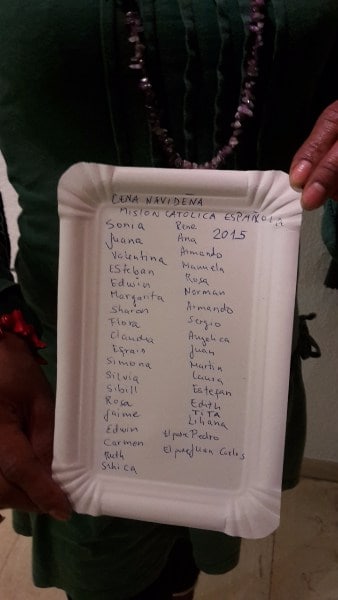 CENA NAVIDEÑA
MISION CATOLICA ESPAÑOLA
2015
Sonia
Juana
Valentina
Esteban
Edwin
Margarita
Sharon
Flora
Claudia
Efrain
Simona
Silvia
Sibill
Rosa
Jaime
Edwin
Carmen
Ruth
Rene
Ana
Armando
Manuela
Rosa
Norman
Armando
Sergio
Angelica
Juan
Martin
Laura
Estefan
Edith
TITA
Liliana
El padre Pedro
El padre Juan Carlos